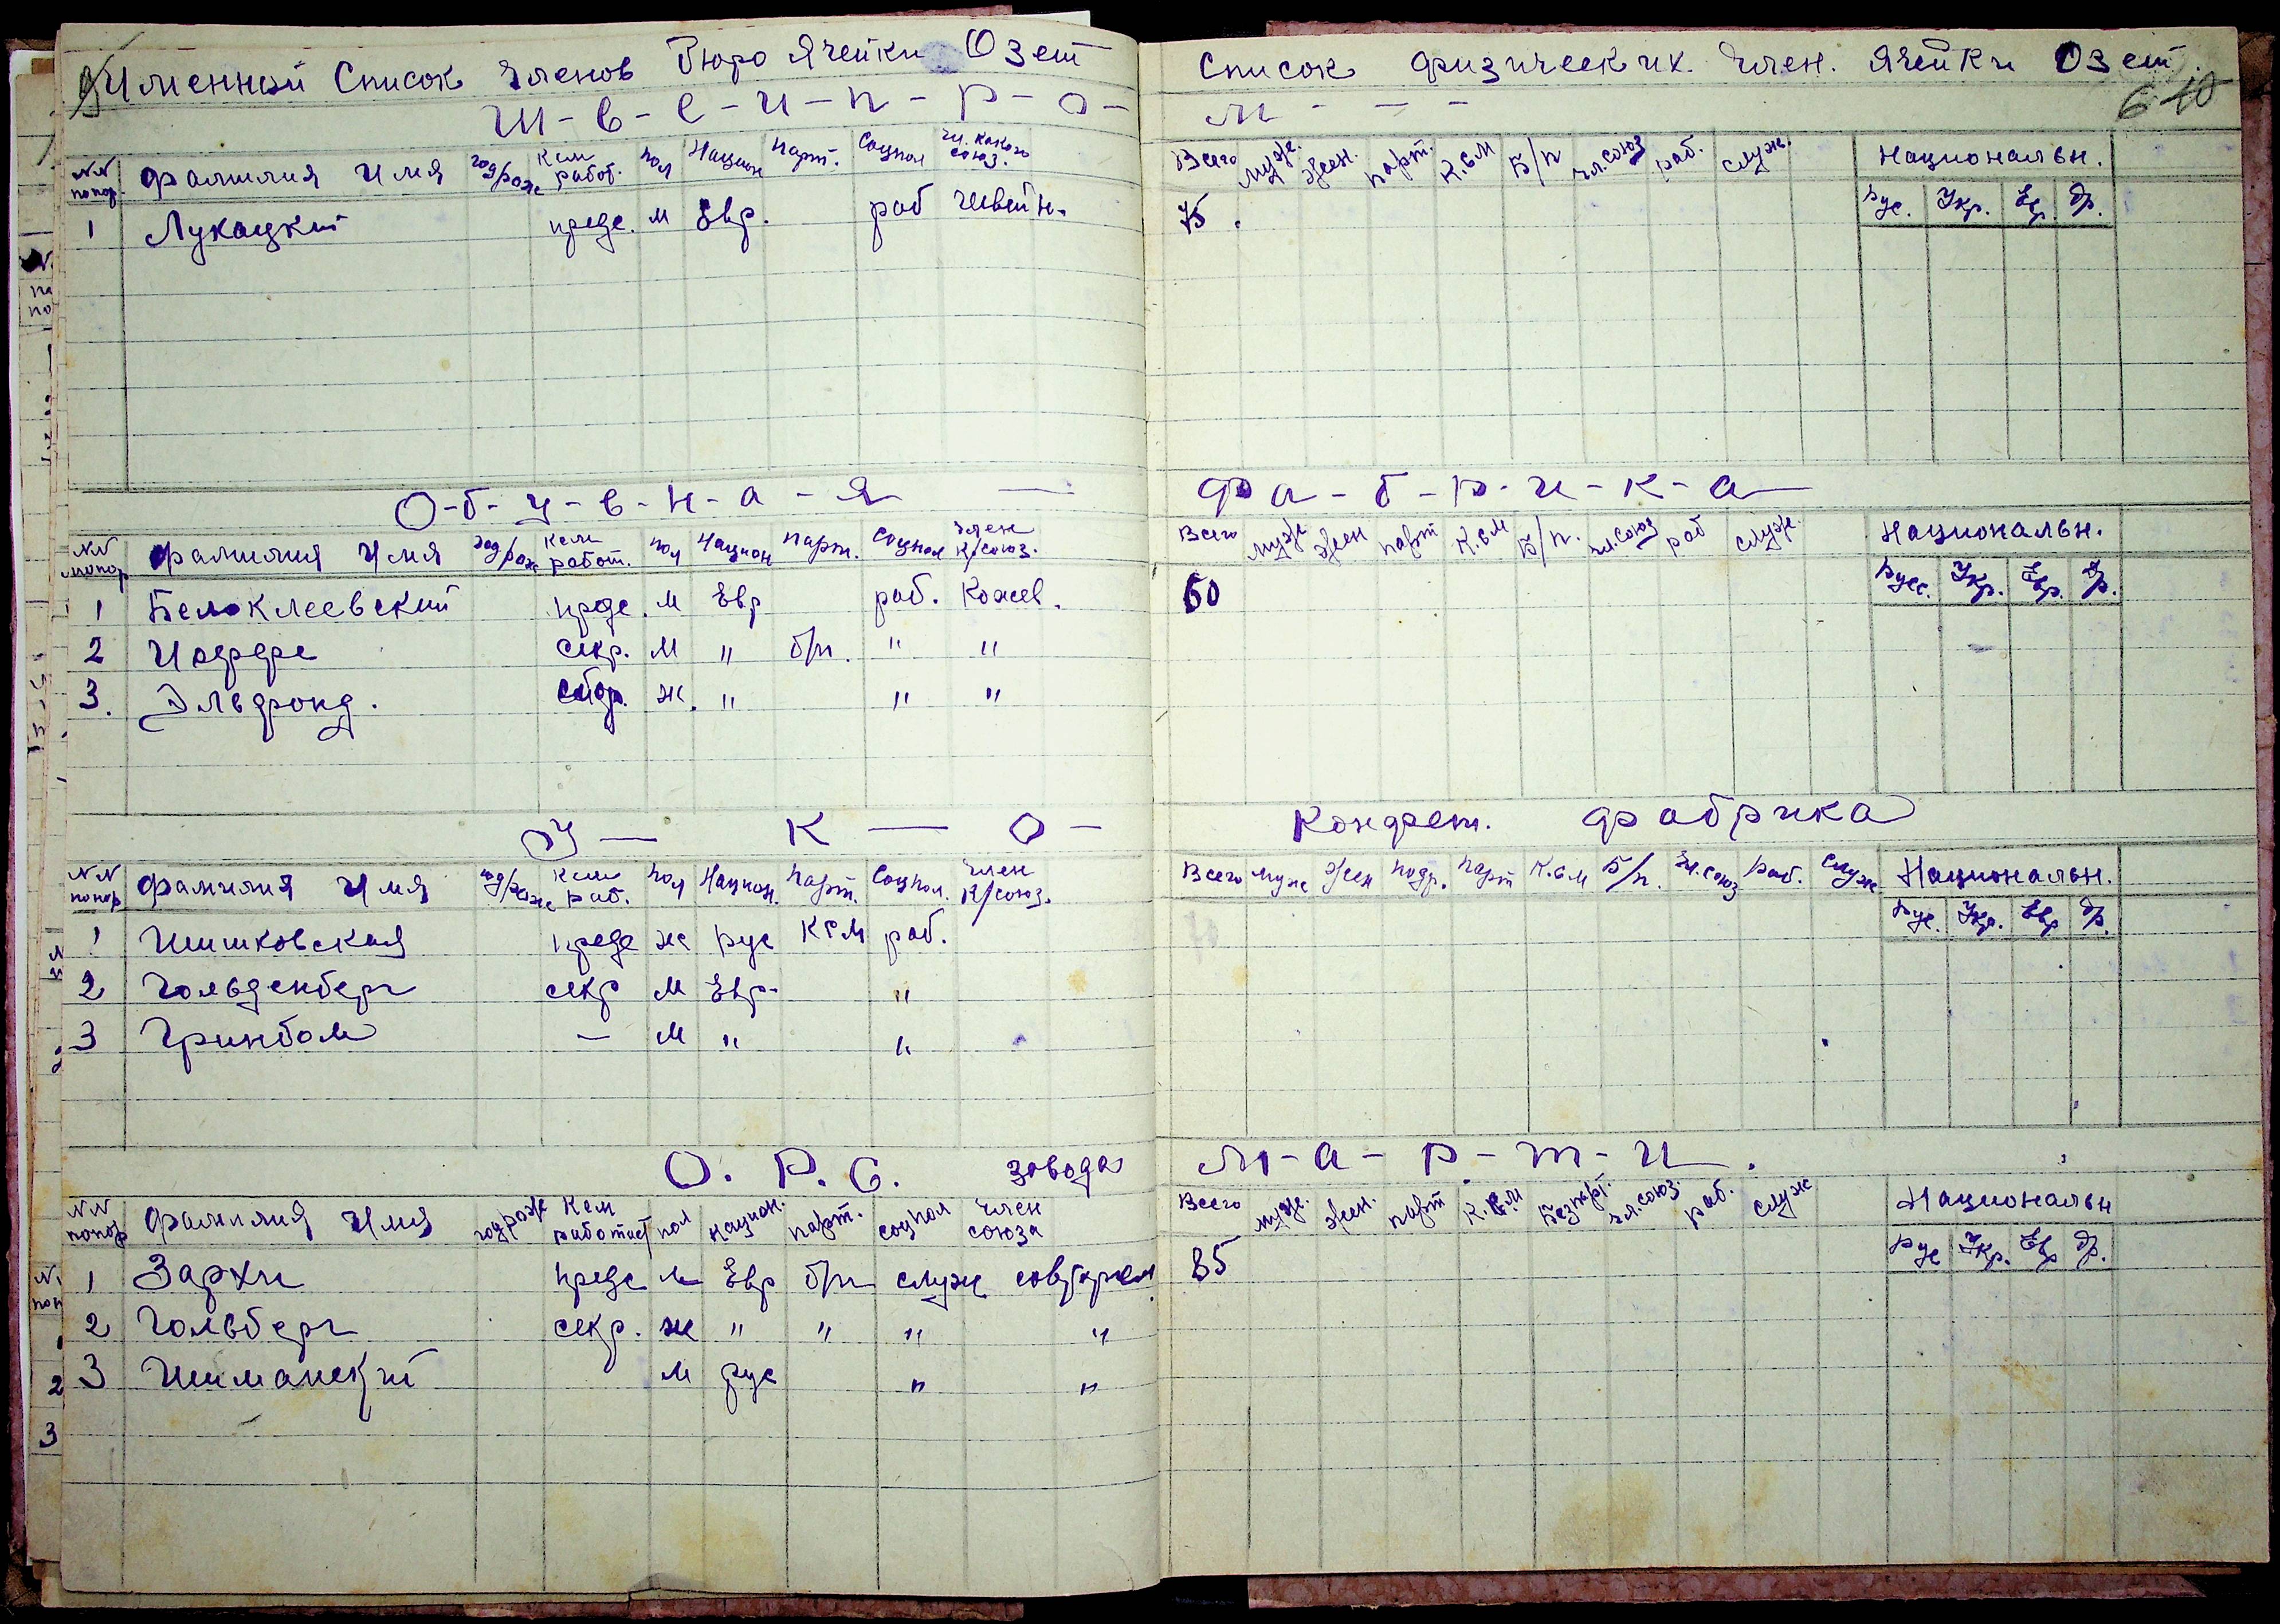 Именной Список Членов Бюро Ячейки Озет
Ш-в-е-й-п-р-о-
№№ попор Фамилия Имя год/рож Кем работ. пол Национ парт. Соцпол Чл. какого союз.
1 Лукацкий предс. м Евр. раб Швейн.
О-б-у-в-н-а-я —
№№ попор Фамилия Имя год/рож Кем работ. пол Национ парт. Соцпол Член К/союз.
1 Белоклеевский предс. м Евр раб. Кожев.
2 Иоффе секр. м " б/п. " "
3. Эльфонд. сбор. ж. " " "
У — К — О —
№№ попор Фамилия Имя год/рож Кем раб. пол Национ. парт. Соцпол. Член К/союз.
1 Шишковская предс ж рус КСМ раб.
2 Гольденберг секр м Евр. "
3 Гринбом — м " "
О. Р. С. завода
№№ попор Фамилия Имя год рож Кем работает пол Национ. парт. соцпол Член союза
1 Зархи предс м Евр б/п служ
2 Гольберг секр. ж " " " "
3 Шиманский м рус " "
Список физических член. Ячейки Озет.
6 10
м - - -
Всего муж. жен. парт. К.с.м Б/п чл.союз раб. служ. Национальн.
Рус. Укр. Ев. Др.
75.
Фа-б-р-и-к-а
Всего муж жен парт К.с.м Б/п. чл.союз раб служ. Национальн.
Русс. Укр. Евр. Др.
60
Конфет. фабрика
Всего муж жен подр. парт К.с.м Б/п. чл.союз раб. служ Национальн.
Рус. Укр. Евр Др.
М-а-р-т-и.
Всего муж. жен. парт К.с.м Безпарт. чл.союз. раб. служ Национальн
Рус Укр. Евр Др.
85